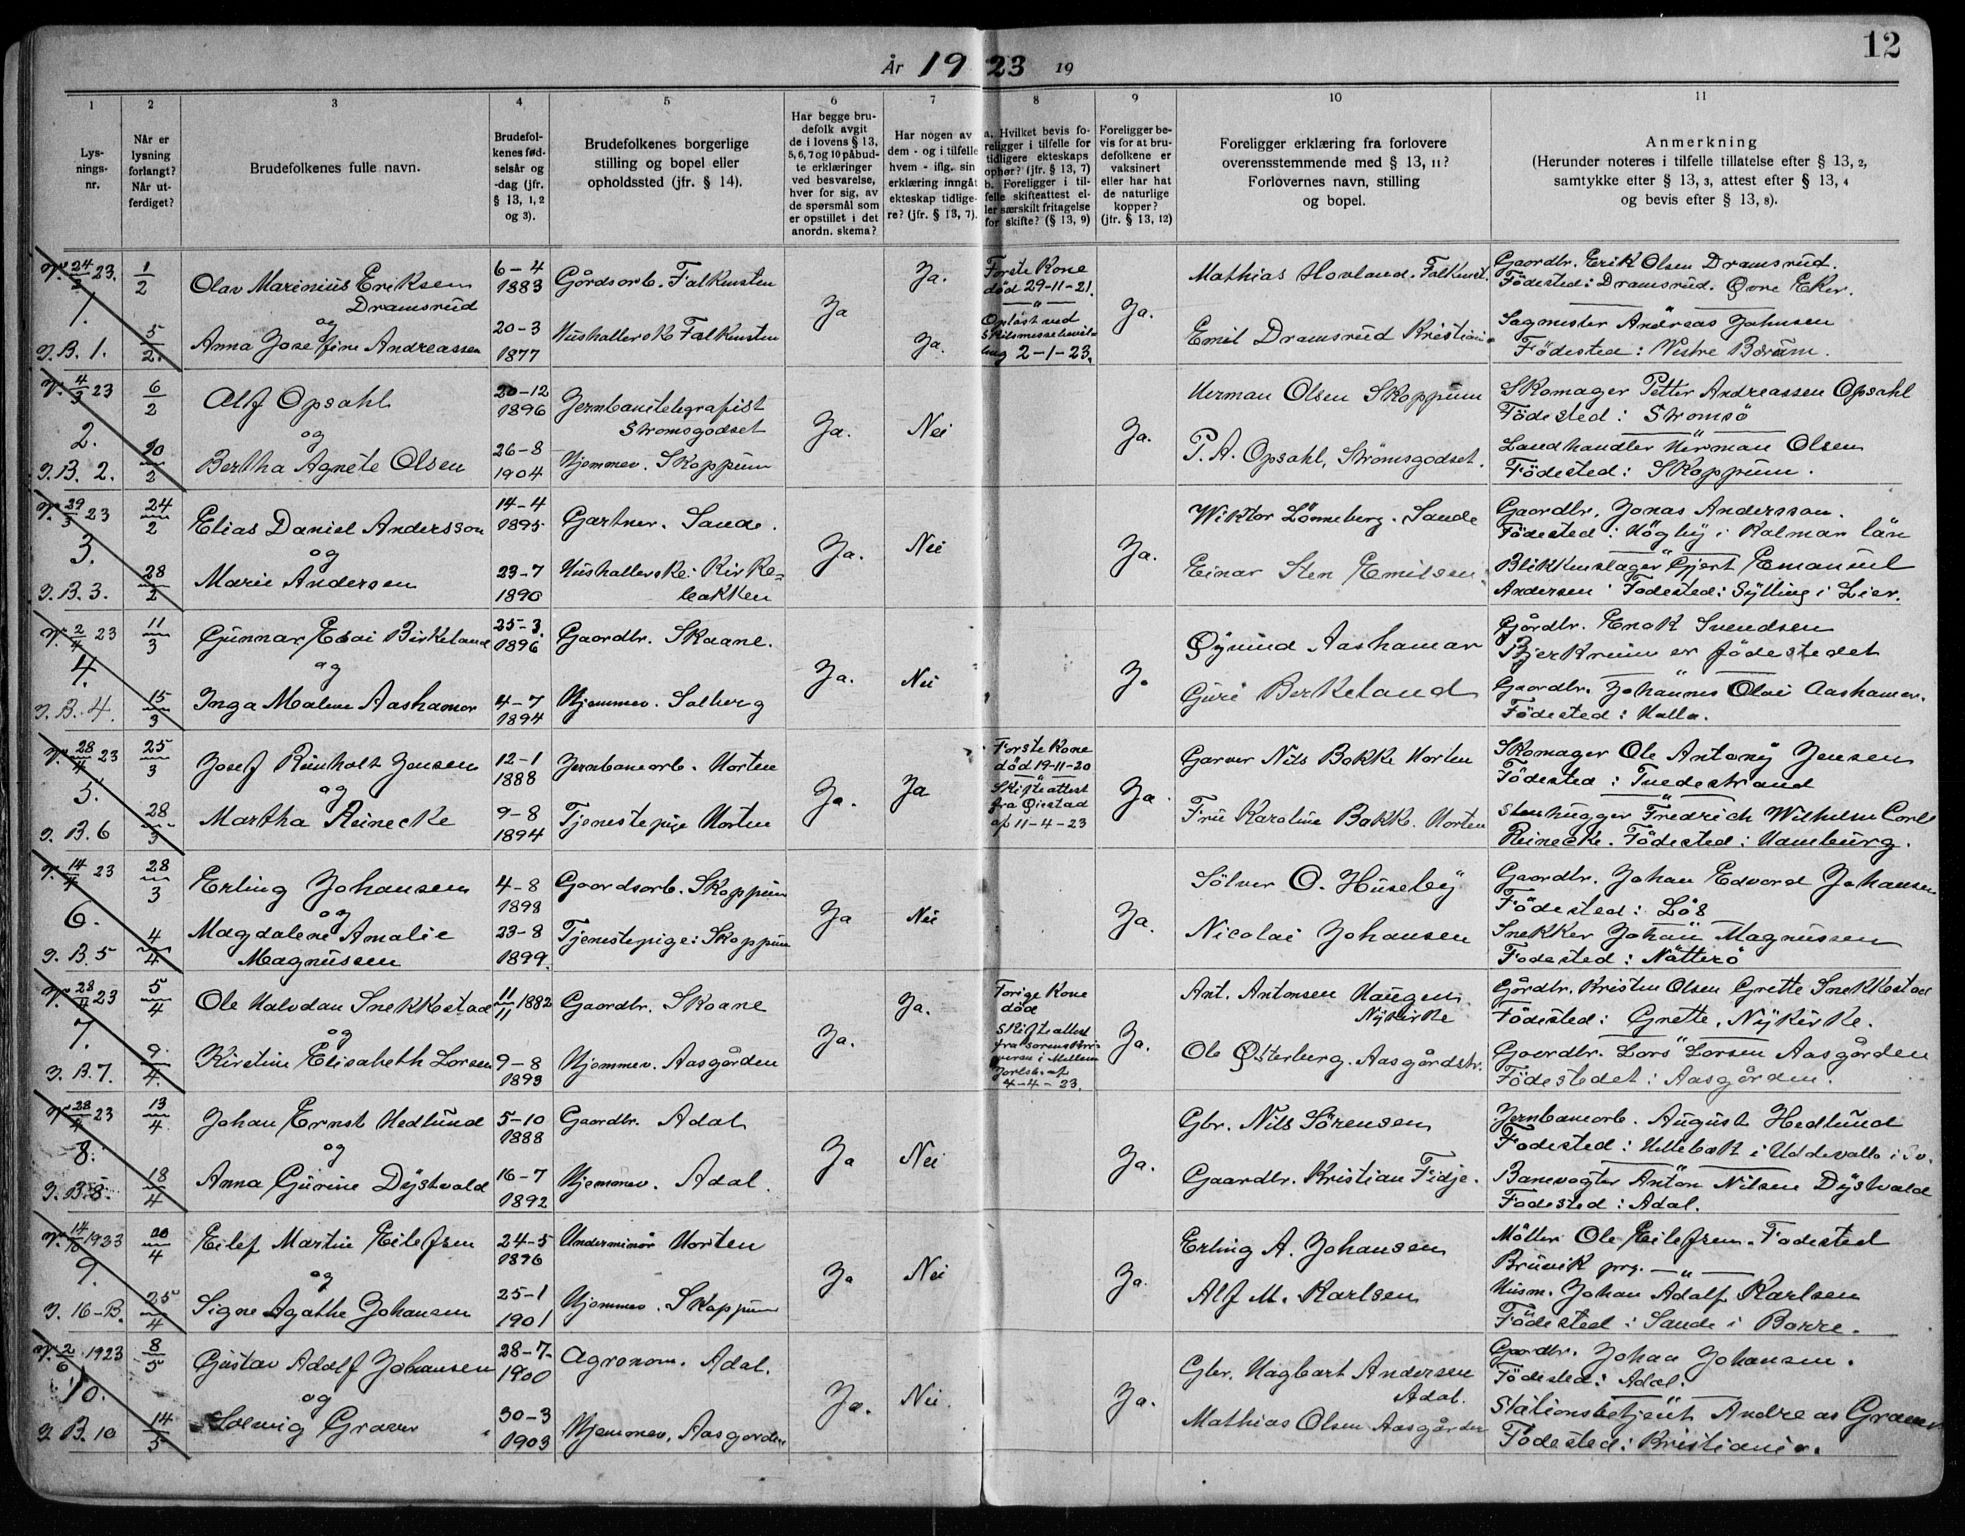 12
År 1923 19
1 2 3 4 5 6 7 8 9 10 11
Lys-
nings-
nr.
Når er
lysning
forlangt?
Når ut-
ferdiget?
Brudefolkenes fulle navn.
Brudefol-
kenes fød-
selsår og
-dag (jfr.
§ 13, 1, 2
og 3).
Brudefolkenes borgerlige
stilling og bopel eller
opholdssted (jfr. § 14).
Har begge bru-
defolk avgit
de i lovens § 13,
5, 6, 7 og 10 påbud-
te erklæringer
ved besvarelse,
hver for sig, av
de spørsmål som
er opstillet i det
anordn. skema?
Har nogen av
dem - og i tilfelle
hvem - iflg. sin
erklæring inngåt
ekteskap tidlige-
re? (jfr. § 13, 7).
a. Hvilket bevis fo-
religger i tilfelle for
tidligere ekteskaps
ophør? (jfr. § 13, 7)
b. Foreligger i til-
felle skifteattest el-
ler særskilt fritagelse
for skifte? (§ 13, 9)
Foreligger be-
vis for at bru-
defolkene er
vaksinert
eller har hat
de naturlige
kopper?
(jfr. § 13, 12)
Foreligger erklæring fra forlovere
overensstemmende med § 13, 11?
Forlovernes navn, stilling
og bopel.
Anmerkning
(Herunder noteres i tilfelle tillatelse efter § 13, 2,
samtykke efter § 13, 3, attest efter § 13, 4
og bevis efter § 13, 8).
V. 24/2 23.
1.
J.B. 1.
1/2
5/2.
Olav Marinius Eriksen
Dramsrud
og
Anna Josefine Andreassen
6-4
1883
20-3
1877
Gårdsarb. Falkensten
Hushollerske Falkensten
Ja
Ja.
Ja.
Förste Kone
död 29-11-21.
"
Oplöst ved
Skilsmissebevil-
ling 2-1-23.
Ja.
Mathias Hovland. Falkenst.
Emil Dramsrud Kristiania
Gaardbr. Erik Olsen Dramsrud.
Födested: Dramsrud. Övre Eker.
Sagmester Andreas Johnsen
Födested: Vestre Bærum.
V. 4/3 23
2.
J.B. 2.
6/2
20/2
Alf Opsahl
og
Bertha Agnete Olsen
20-12
1896
26-8
1904
Jernbanetelegrafist
Strömsgodset
Hjemmev. Skoppum
Ja.
Nei
Ja.
Herman Olsen Skoppum
P. A. Opsahl, Strömsgodset.
Skomager Petter Andreassen Opsahl
Födested: Strömsö
Landhandler Herman Olsen
Födested: Skoppum.
V. 29/3 23
3.
J.B. 3.
24/2
28/2
Elias Daniel Andersson
og
Marie Andersen
14-4
1895
23-7
1890
Gartner. Sande.
Hushollerske: Kirke=
bakken
Ja.
Nei
Ja.
Wiktor Lönneberg. Sande
Einar Sten Emilsen.
Gaardbr. Jonas Andersson.
Födested: Högby i Kalmar län
Blikkenslager Gjert Emanuel
Andersen Födested: Sylling i Lier.
V. 2/4 23
4.
J.B. 4.
11/3
15/3
Gunnar Esai Birkeland
og
Inga Malene Aashamar
25-3.
1896
4-7
1894
Gaardbr. Skaane.
Hjemmev. Solberg
Ja.
Nei
Ja
Öyvind Aashamar
Guri Berkeland
Gårdbr. Enok Svendsen
Bjerkreim er födestedet
Gaardbr. Johannes Olai Aashamar.
Födested: Halla.
V. 28/4 23
5.
J.B. 6
25/3
28/3
Josef Reinholt Jensen
og
Martha Reinecke
12-1
1888
9-8
1894
Jernbanearb. Horten
Tjenestepige Horten
Ja.
Ja
Förste Kone
död 19-11-20
"
Skifteattest
fra Öiestad
af 11-4-23
Ja
Garver Nils Bakke Horten
Frue Karoline Bakke. Horten
Skomager Ole Antony Jensen
Födested: Tvedestrand
Stenhugger Fredrich Wilhelm Carl
Reinecke. Födested: Hamburg.
V. 14/4 23
6.
J.B. 5
28/3
4/4
Erling Johansen
og
Magdalene Amalie
Magnussen
4-8
1898
23-8
1899.
Gaardsarb. Skoppum
Tjenestepige: Skoppum
Ja
Nei
Ja.
Sölver O. Huseby
Nicolai Johansen
Gaardbr. Johan Edvard Johansen
Födested: Lös
Snekker Johan Magnussen
Födested: Nötterö
V. 28/4 23
7.
J.B. 7.
5/4
9/4.
Ole Halvdan Snekkestad
og
Kirstine Elisabeth Larsen
11/11 1882
9-8
1893
Gaardbr. Skaane
Hjemmev. Aasgården
Ja.
Ja.
Forige Kone
död
Skifteattest
fra Sorenskri-
veren i Mellem
Jarlsb. af
4-4-23.
Ja.
Ant. Antonsen Haugen.
Nykirke
Ole Österberg. Aasgårdstr.
Gårdbr. Kristen Olsen Grette Snekkestad
Födested: Grette, Nykirke.
Gaardbr. Lars Larsen Aasgården
Födestedet: Aasgården.
V. 28/4 23
8.
J.B. 8.
13/4
18/4
Johan Ernst Hedlund
og
Anna Gurine Dystvold
5-10
1888
16-7
1892
Gaardbr. Adal
Hjemmev. Adal.
Ja
Nei
Ja.
Gbr. Nils Sörensen
Gaardbr. Kristian Fidje.
Jernbanearb. August Hedlund
Födested: Hellebæk i Uddevalla i Sv.
Banevogter Anton Nilsen Dystvold
Födested: Adal.
V. 14/10 1923
9.
J. 16-B.
20/4
25/4
Eilef Martin Eilefsen
og
Signe Agathe Johansen
24-5
1896
25-1
1901
Underminör Horten
Hjemmev. Skoppum
Ja
Nei
Ja.
Erling A. Johansen
Alf M. Karlsen
Möller Ole Eilefsen. Födested
Bruvik prg. "
Husm. Johan Adolf Karlsen
Födested: Sande i Borre.
V. 2/6 1923
10.
J.B. 10
8/5
14/5
Gustav Adolf Johansen
og
Solveig Graver
28-7-
1900
30-3
1903
Agronom. Adal.
Hjemmev. Aasgården
Ja.
Nei.
Ja.
Gbr. Hagbart Andersen
Adal.
Mathias Olsen Aasgården
Gaardbr. Johan Johansen.
Födested: Adal.
Stationsbetjent Andreas Graver
Födested: Kristiania.